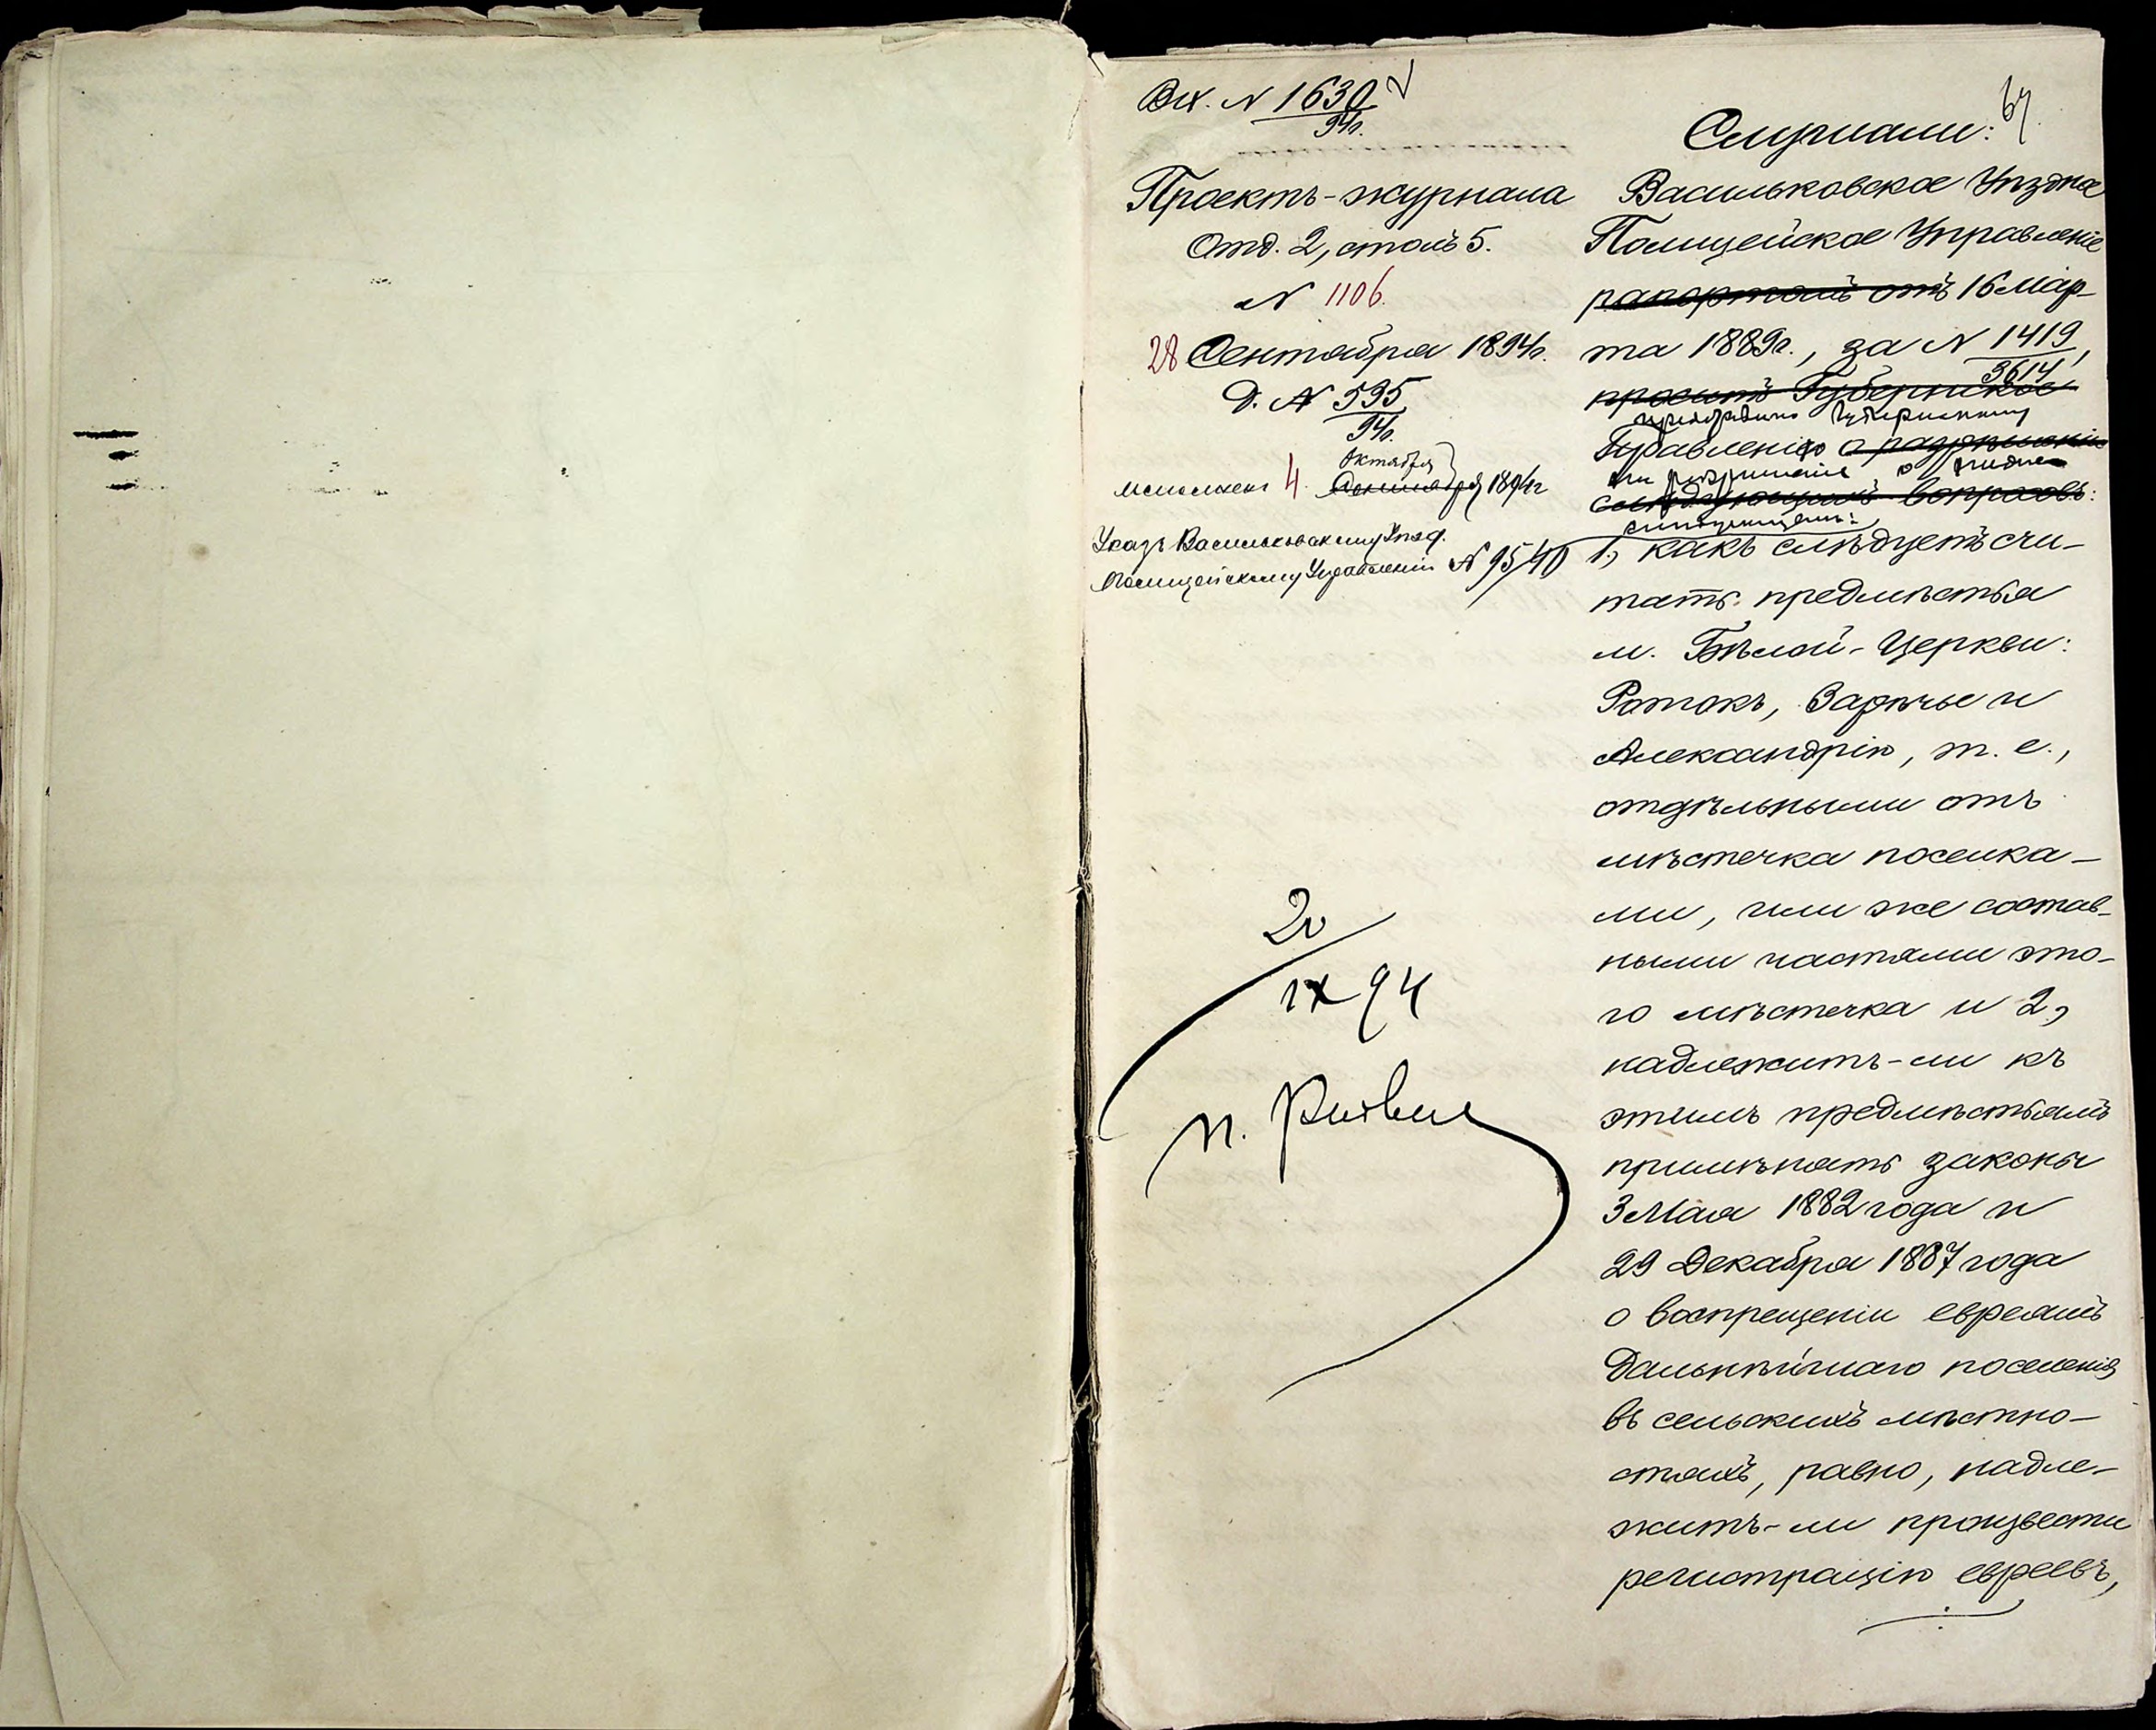 Вх. N 1630
94г.
Проектъ-журнала
Отд. 2, столъ 5.
N 1106.
28 Сентября 1894г.
Д. N 595
94г.
Октября
4 Сентября 1894г
Указъ Васильковскому Уезд.
Полицейскому Управленію N 9540
20
IX 94
67.
Слушали:
Васильковское Уѣздное
Полицейское Управленіе
рапортомъ отъ 16 Мар-
та 1889г., за N 1419,
3614
проситъ Губернское
Губернскому
Правленію о разрѣшеніи
на разрѣшеніе о
слѣдующихъ вопросовъ:
1., какъ слѣдуетъ счи-
тать предмѣстья
м. Бѣлой-Церкви:
Ротокъ, Зарѣчье и
Александрію, т. е.,
отдѣльными отъ
мѣстечка поселка-
ми, или же состав-
ными частями это-
го мѣстечка и 2,
надлежитъ-ли къ
этимъ предмѣстьямъ
примѣнять законы
3 Мая 1882 года и
29 Декабря 1887 года
о воспрещеніи евреямъ
дальнѣйшаго поселенія
въ сельскихъ мѣстно-
стяхъ, равно, надле-
житъ-ли произвести
регистрацію евреевъ,